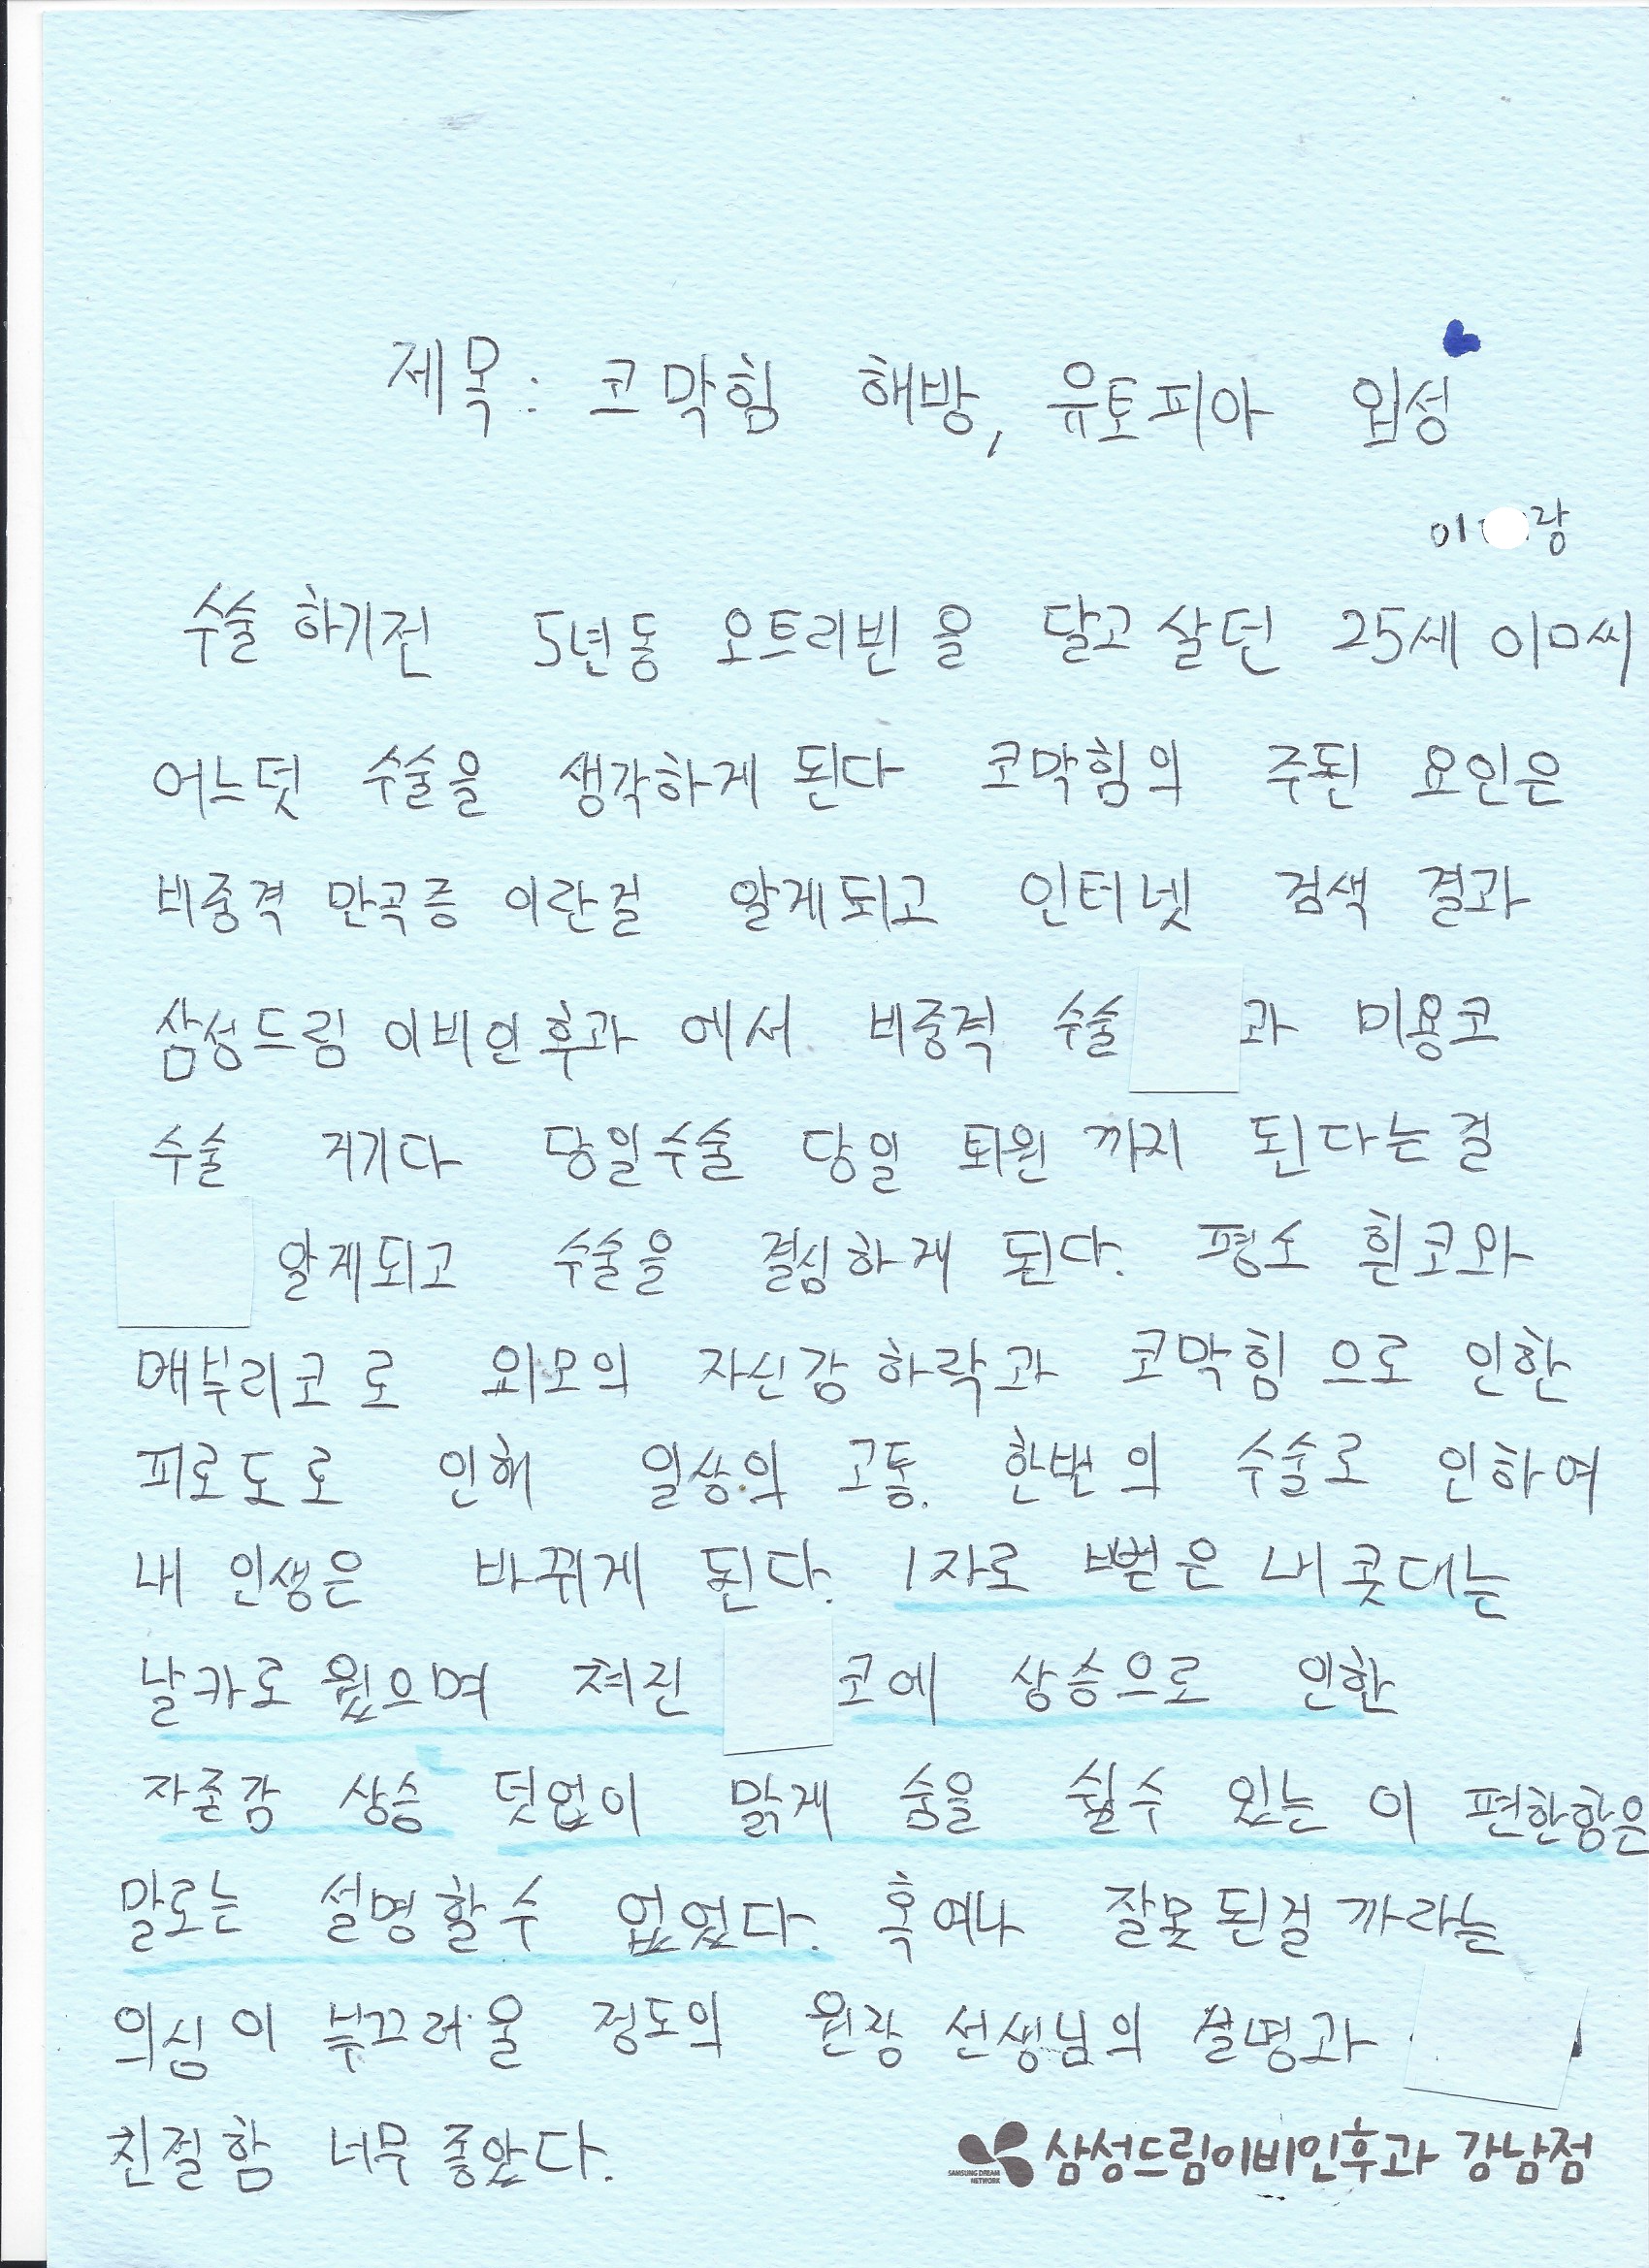 제목: 코막힘 해방, 유토피아 입성
이 랑
수술 하기전 5년동 오트리빈을 달고 살던 25세 이ㅁ씨
어느덧 수술을 생각하게 된다 코막힘의 주된 요인은
비중격 만곡증 이란걸 알게되고 인터넷 검색 결과
삼성드림 이비인후과 에서 비중격 수술 과 미용코
수술 거기다 당일수술 당일 퇴원 까지 된다는걸
알게되고 수술을 결심하게 된다. 평소 휜코와
매부리코로 외모의 자신감 하락과 코막힘으로 인한
피로도로 인해 일상의 고통. 한번의 수술로 인하여
내 인생은 바뀌게 된다. 1자로 뻗은 내 콧대는
날카로웠으며 쳐진 코에 상승으로 인한
자존감 상승 덧없이 맑게 숨을 쉴수 있는 이 편한함은
말로는 설명할수 없었다. 혹여나 잘못된걸까라는
의심이 부끄러울 정도의 원장 선생님의 설명과
친절함 너무 좋았다.
SAMSUNG DREAM NETWORK 삼성드림이비인후과 강남점